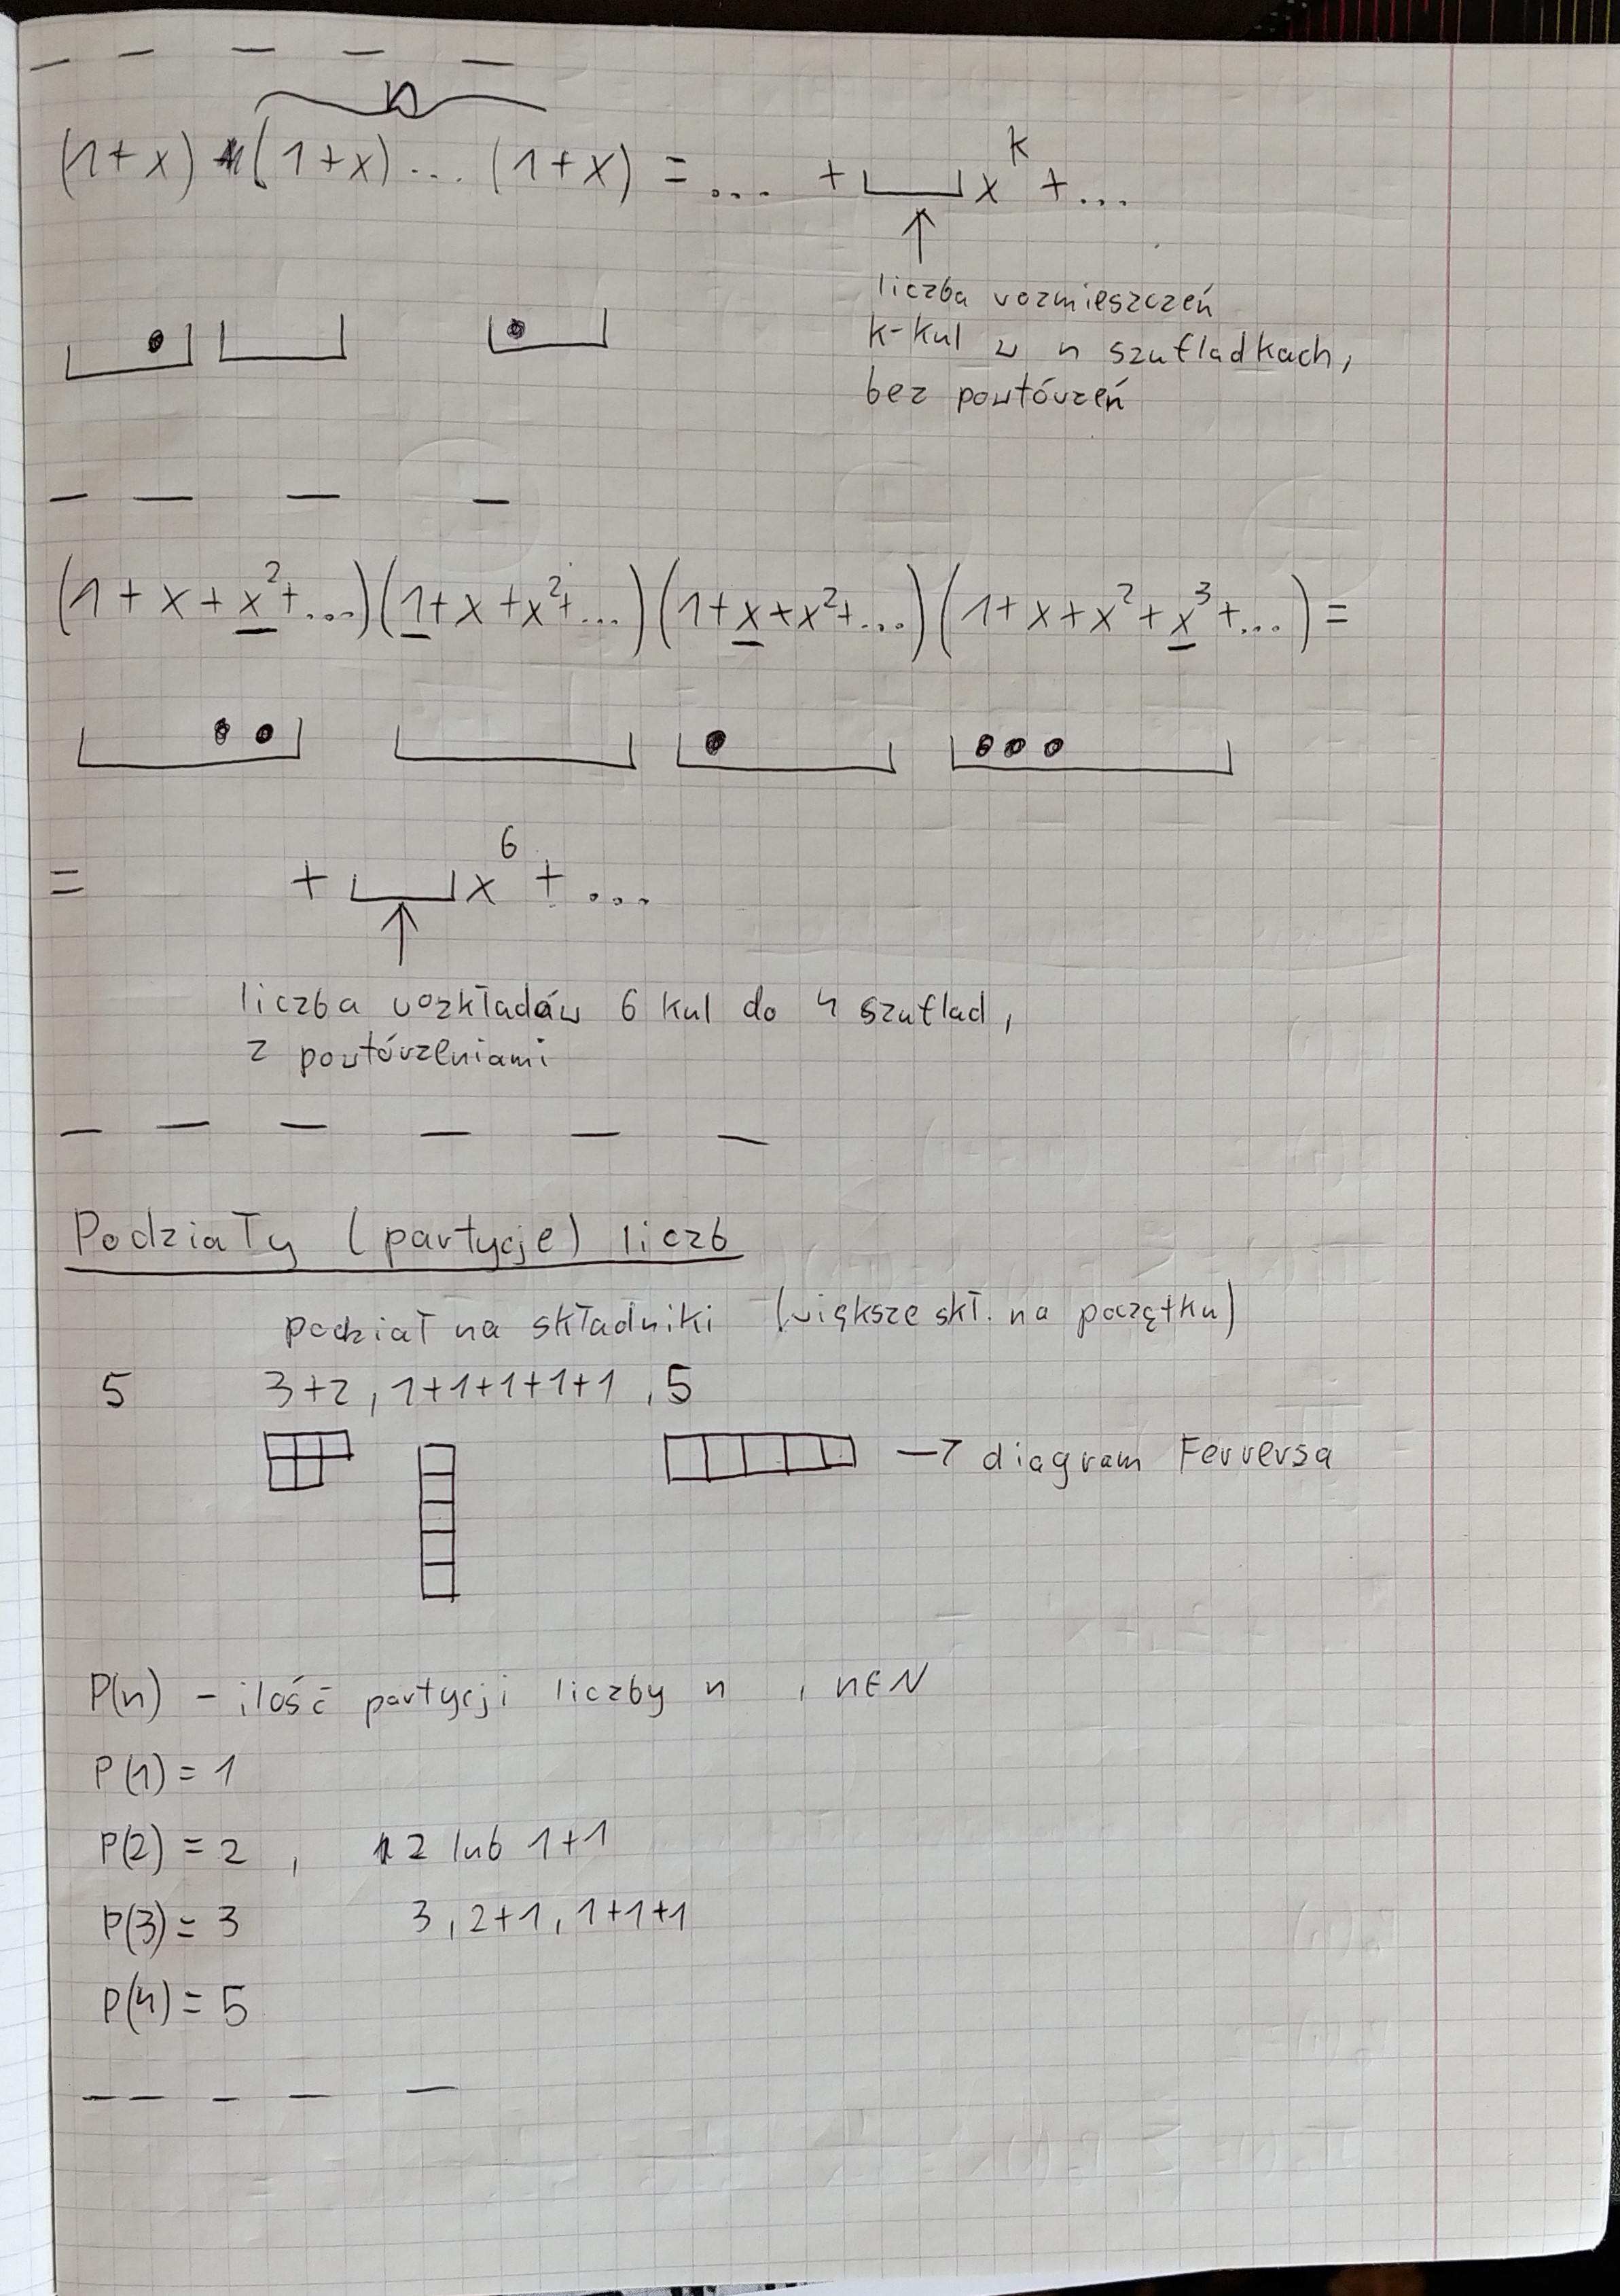 n
(1+x) (1+x) ... (1+x) = ... + ⎵ x^k + ...
↑
liczba rozmieszczeń
k-kul w n szufladkach,
bez powtórzeń
(1 + x + x² + ...)(1 + x + x² + ...)(1 + x + x² + ...)(1 + x + x² + x³ + ...) =
= + ⎵ x⁶ + ...
↑
liczba rozkładów 6 kul do 4 szuflad,
z powtórzeniami
Podziały (partycje) liczb
podział na składniki (większe skł. na początku)
5 3+2, 1+1+1+1+1, 5
→ diagram Ferrersa
P(n) - ilość partycji liczby n , n∈N
P(1) = 1
P(2) = 2 , 2 lub 1+1
P(3) = 3 3, 2+1, 1+1+1
P(4) = 5